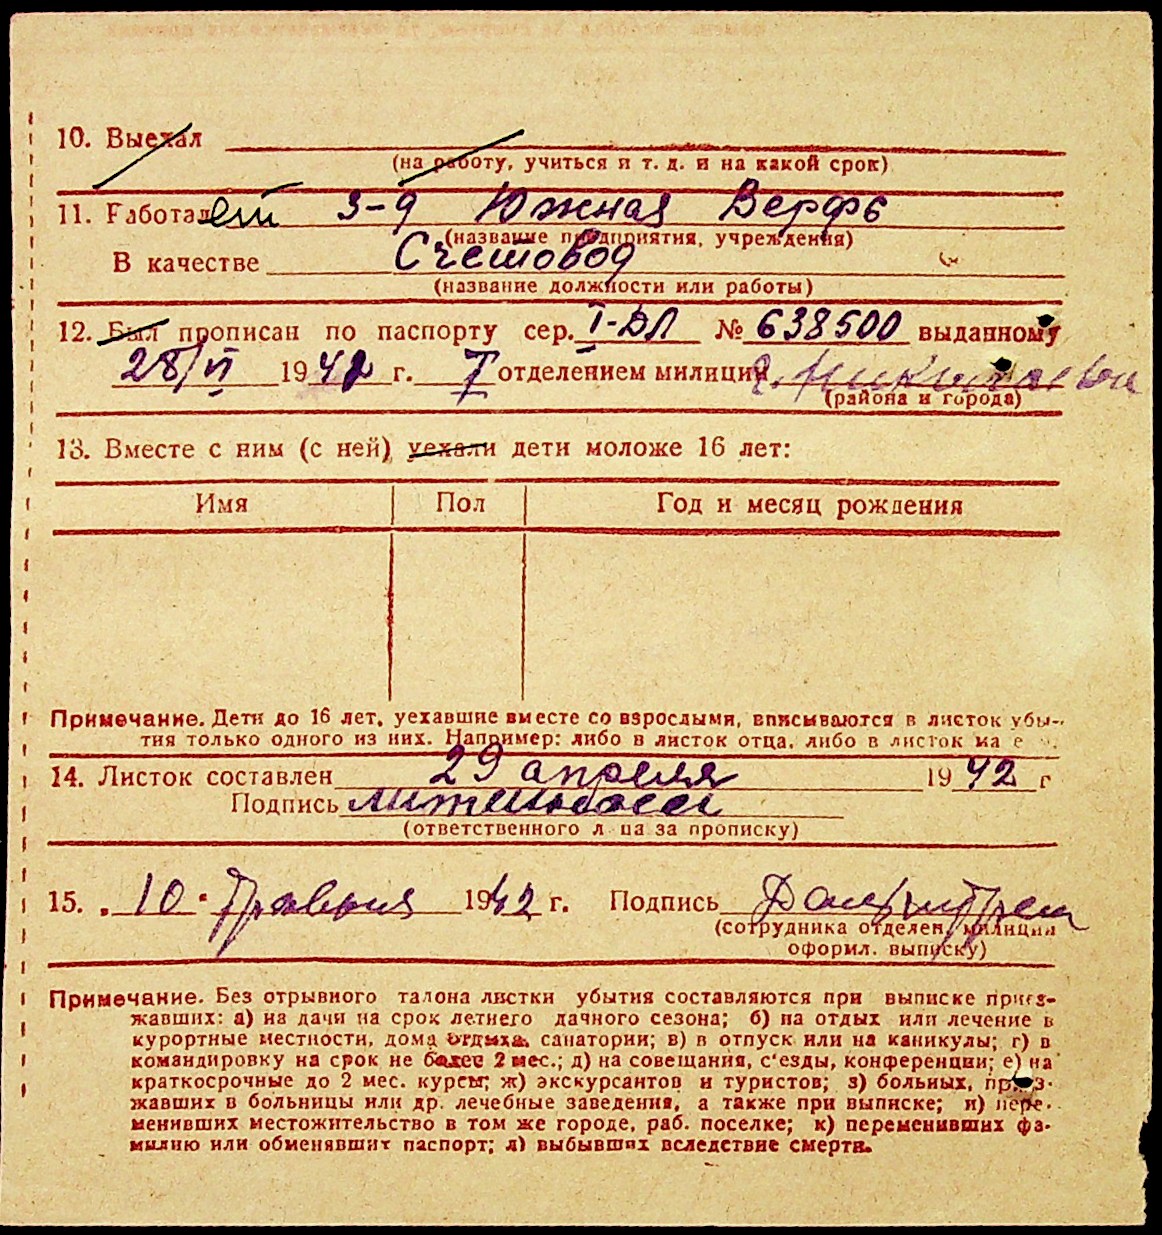 10. Выехал
(на работу, учиться и т. д. и на какой срок)
11. Работает З-д Южная Верфь
(название предприятия, учреждения)
В качестве Счетовод
(название должности или работы)
12. Был прописан по паспорту сер. I-ВЛ № 638500 выданному
28/VI 1942 г. I отделением милиции г. Николаева
(района и города)
13. Вместе с ним (с ней) уехали дети моложе 16 лет:
Имя Пол Год и месяц рождения
Примечание. Дети до 16 лет, уехавшие вместе со взрослыми, вписываются в листок убы-
тия только одного из них. Например: либо в листок отца, либо в листок ма е
14. Листок составлен 29 апреля 1942 г
Подпись
(ответственного л ца за прописку)
15. „10“ Травня 1942 г. Подпись
(сотрудника отделен. милиции
оформл. выписку)
Примечание. Без отрывного талона листки убытия составляются при выписке приез-
жавших: а) на дачи на срок летнего дачного сезона; б) на отдых или лечение в
курортные местности, дома отдыха, санатории; в) в отпуск или на каникулы; г) в
командировку на срок не более 2 мес.; д) на совещания, с'езды, конференции; е) на
краткосрочные до 2 мес. курсы; ж) экскурсантов и туристов; з) больных, приез-
жавших в больницы или др. лечебные заведения, а также при выписке; и) пере-
менивших местожительство в том же городе, раб. поселке; к) переменивших фа-
милию или обменявших паспорт; л) выбывших вследствие смерти.